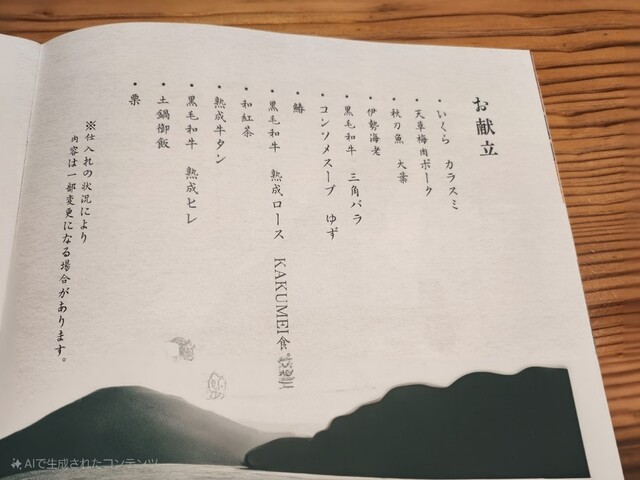 お献立
・いくら カラスミ
・天草梅肉ポーク
・秋刀魚 大葉
・伊勢海老
・黒毛和牛 三角バラ
・コンソメスープ ゆず
・鰆
・黒毛和牛 熟成ロース KAKUMEI食
・和紅茶
・熟成牛タン
・黒毛和牛 熟成ヒレ
・土鍋御飯
・栗
※仕入れの状況により
内容は一部変更になる場合があります。
AIで生成されたコンテンツ